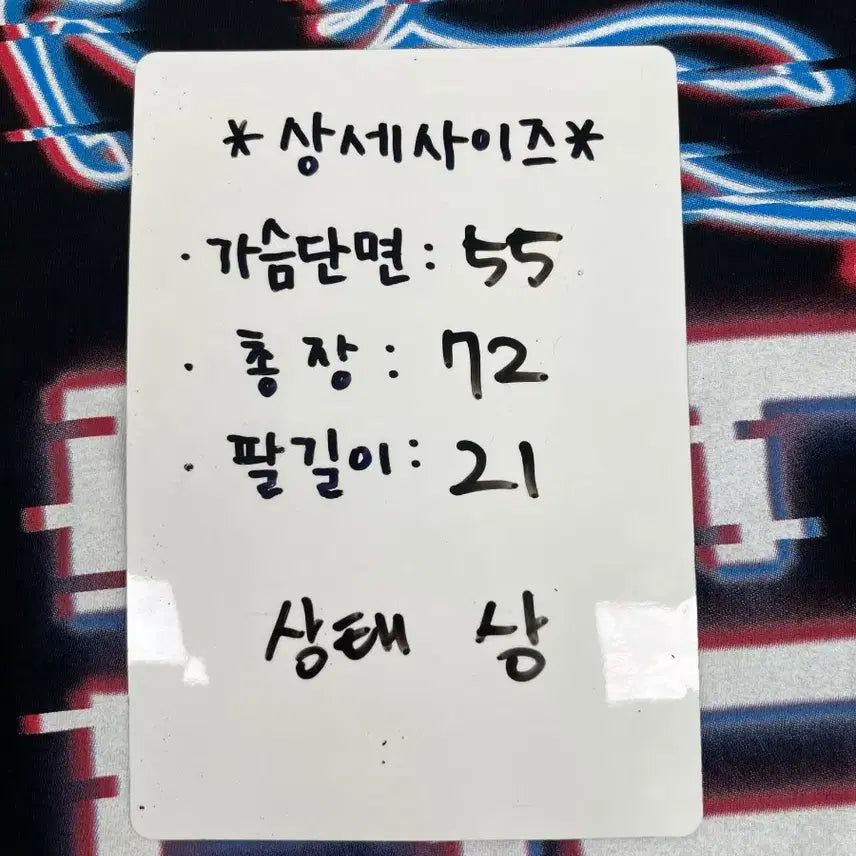 *상세사이즈*
· 가슴단면 : 55
· 총장 : 72
· 팔길이 : 21
상태 상